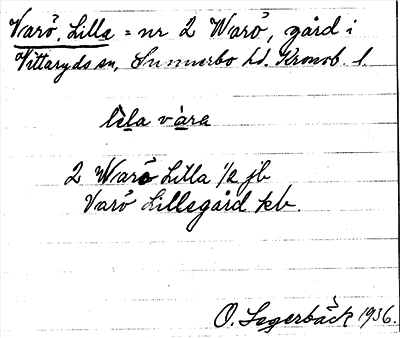 Varö, Lilla = nr 2 Warö, gård i
Vittaryds sn, Sunnerbo hd. Kronob. l.
lìla vàra
2 Warö Lilla 1/2 jb
Varö Lillegård kb.
O. Segerbäck 1936.